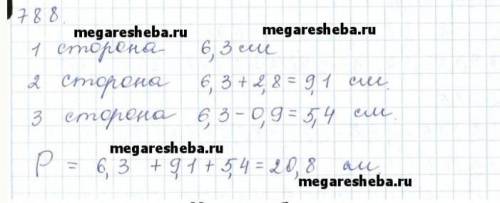 788.
megaresheba.ru megaresheba.ru
1 сторона 6,3 см
2 сторона 6,3+2,8=9,1 см.
3 сторона 6,3-0,9=5,4 см.
megaresheba.ru
P = 6,3 +9,1+5,4=20,8 см
megaresheba.ru